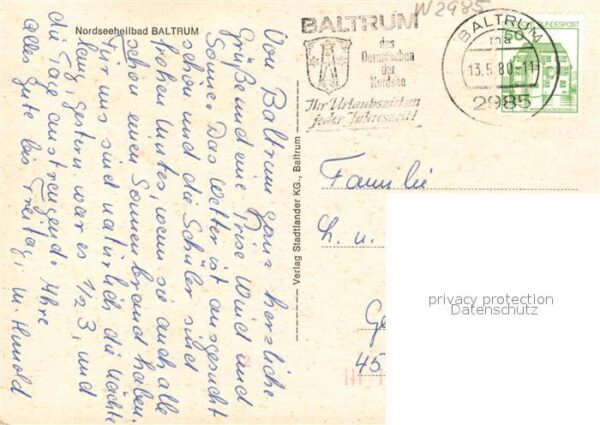 Nordseeheilbad BALTRUM
Von Baltrum ganz herzliche
Grüße und eine Prise Wind und
Sonne. Das Wetter ist ausgesucht
schön und die Schüler sind
frohen Mutes, wenn sie auch alle
schon einen Sonnenbrand haben.
Für uns sind natürlich die Nächte
kurz, gestern war es 1/2 3, und
die Tage anstrengend. Ihre
alles gute bis Freitag,
Verlag Stadtlander KG., Baltrum
W 2985
BALTRUM
das
Dornröschen
der
Nordsee
Ihr Urlaubsziel zu
jeder Jahreszeit!
BALTRUM
ma
13.5.80-11
2985
BUNDESPOST
50
Familie
h. u.
Ge
45
privacy protection
Datenschutz